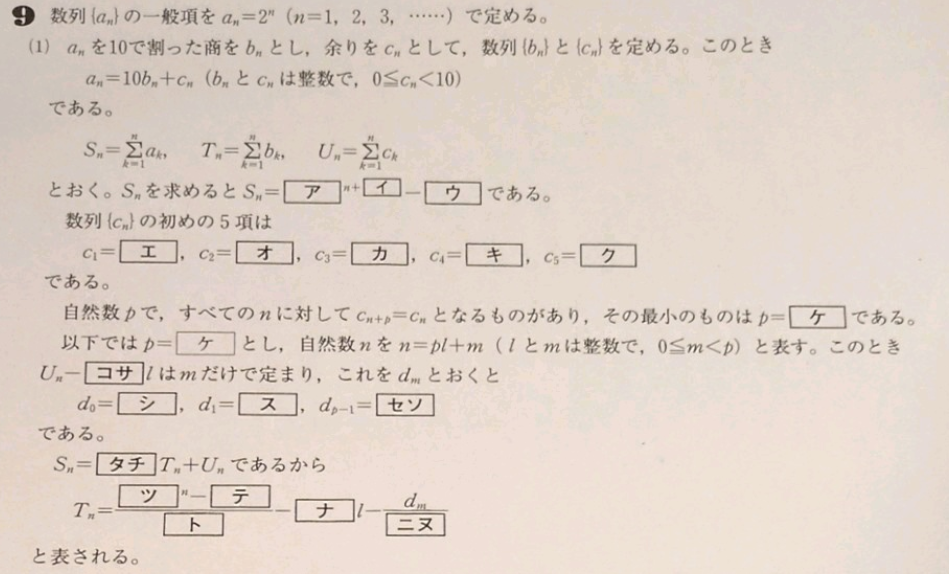 9 数列{aₙ}の一般項を aₙ=2ⁿ (n=1, 2, 3, ……) で定める。
(1) aₙを10で割った商をbₙとし，余りをcₙとして，数列{bₙ}と{cₙ}を定める。このとき
aₙ=10bₙ+cₙ (bₙとcₙは整数で，0≦cₙ<10)
である。
Sₙ=∑ⁿₖ₌₁aₖ, Tₙ=∑ⁿₖ₌₁bₖ, Uₙ=∑ⁿₖ₌₁cₖ
とおく。Sₙを求めると Sₙ=[ア]ⁿ⁺[イ]−[ウ]である。
数列{cₙ}の初めの5項は
c₁=[エ], c₂=[オ], c₃=[カ], c₄=[キ], c₅=[ク]
である。
自然数pで，すべてのnに対してcₙ₊ₚ=cₙとなるものがあり，その最小のものはp=[ケ]である。
以下ではp=[ケ]とし，自然数nをn=pl+m (lとmは整数で，0≦m<p) と表す。このとき
Uₙ−[コサ]lはmだけで定まり，これをdₘとおくと
d₀=[シ], d₁=[ス], dₚ₋₁=[セソ]
である。
Sₙ=[タチ]Tₙ+Uₙであるから
Tₙ=([ツ]ⁿ−[テ])/[ト]−[ナ]l−dₘ/[ニヌ]
と表される。